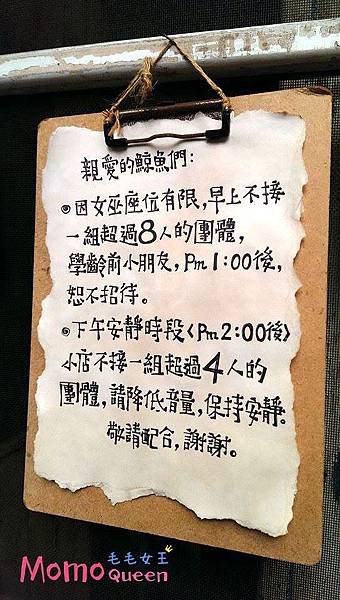 親愛的鯨魚們:
◎因女巫座位有限,早上不接
一組超過8人的團體,
學齡前小朋友,Pm1:00後,
恕不招待。
◎下午安靜時段<Pm2:00後>
小店不接一組超過4人的
團體,請降低音量,保持安靜。
敬請配合,謝謝。
Momo 毛毛女王
Queen